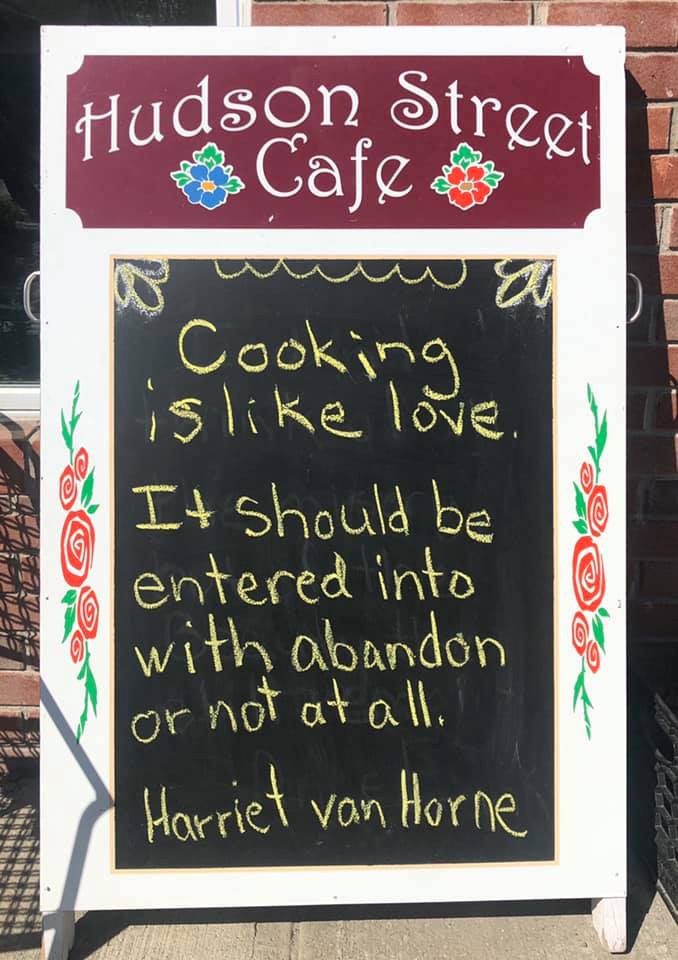 Hudson Street
Cafe
Cooking
is like love.
It should be
entered into
with abandon
or not at all.
Harriet van Horne